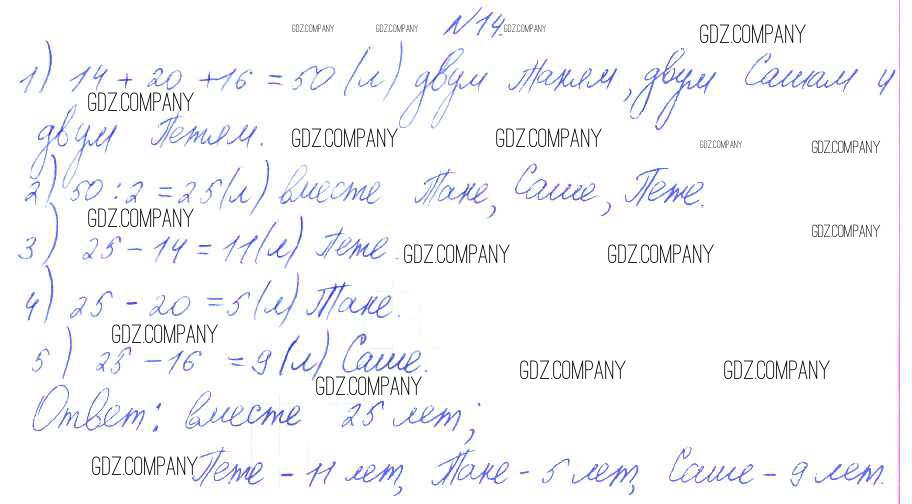 GDZ.COMPANY GDZ.COMPANY №14. GDZ.COMPANY GDZ.COMPANY
1) 14 + 20 + 16 = 50 (л) двум Таням, двум Сашам и
GDZ.COMPANY
двум Петям. GDZ.COMPANY GDZ.COMPANY GDZ.COMPANY GDZ.COMPANY
2) 50 : 2 = 25 (л) вместе Тане, Саше, Пете.
GDZ.COMPANY GDZ.COMPANY
3) 25 - 14 = 11 (л) Пете. GDZ.COMPANY GDZ.COMPANY
4) 25 - 20 = 5 (л) Тане.
GDZ.COMPANY
5) 25 - 16 = 9 (л) Саше. GDZ.COMPANY GDZ.COMPANY
GDZ.COMPANY
Ответ: вместе 25 лет;
GDZ.COMPANY Пете - 11 лет, Тане - 5 лет, Саше - 9 лет.